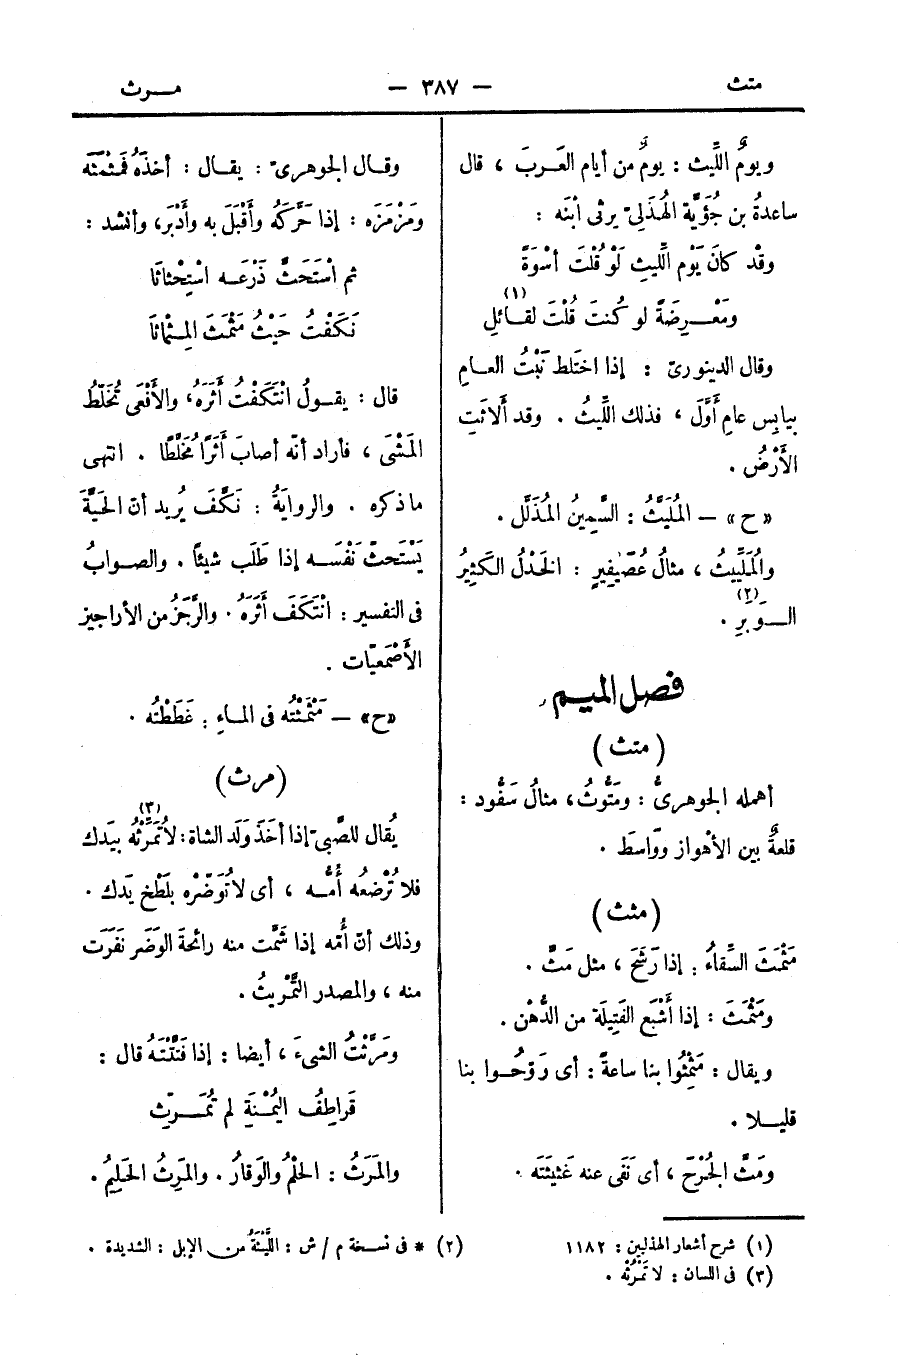 متث
— ٣٨٧ —
مـرث
ويومٌ اللَّيث : يومٌ من أيام العَرب ، قال
ساعدةُ بن جُؤَيَّة الهُذَلِىّ يرثى ابْنَه :
وقْد كانَ يَوْم اللَّيثِ لَوْ قُلْتَ أُسْوَةٌ
ومَعْـرِضَةٌ لو كُنتَ قُلْتَ لقـائلِ (١)
وقال الدينورىّ : إذا اختَلط نَبْتُ العـامِ
بيابِس عامِ أوَّلَ ، فذلك اللَّيثُ . وقد أَلاثَتِ
الأَرْضُ .
«ح» – المُلَيَّثُ : السَّمِينُ المُذَلَّل .
والمُلَيِّيثُ ، مثالُ عُصَيْفِيرٍ : الخَدْلُ الكَثِيرُ
الـوَبَرِ (٢) .
فصل الميـم
(متث)
أهمله الجوهرىُّ : ومَتُّوثُ، مثالُ سَفُّود :
قلعةٌ بين الأهْوازِ ووَاسَط .
(مثث)
مَثْمَثَ السِّقاءُ : إذا رَشَحَ ، مثل مَثَّ .
ومَثْمَثَ : إذا أَشْبَع الفَتِيلَة من الدُّهْن .
ويقال : مَثْمِثُوا بنا ساعةً : أى رَوِّحُـوا بنا
قليـلا .
ومَثَّ الجُرْحَ ، أى نَفَى عنه غَثِيثَتَه .
وقـال الجوهرىّ : يقـال : أخذَهُ فَمَثْمَثَه
ومَزْمَزَه : إذا حَرَّكَهُ وأَقْبَلَ به وأَدْبَرَ، وأنشد :
ثم اْسْتَحَثَّ ذَرْعَـه اسْتِحْثاثَا
نَكَفْتُ حَيْثُ مَثْمَثَ المِـثْماثَا
قال : يقـولُ انْتَكَفْتُ أثَرَهُ، والأفْعَى تُخَلِّطُ
المَشْىَ ، فأراد أنّه أصابَ أَثَرًا مُخَلَّطًا . انتهى
ماذكره . والروايَةُ : نَكَّفَ يُريد أنّ الحَيَّةَ
يَسْتَحثّ نَفْسَـه إذا طَلَب شيئًا . والصـوابُ
فى التفسير : انْتَكَفَ أَثَرَهُ . والرَّجَزُ من الأراجيز
الأَصْمَعيّات .
«ح» – مَثْمَثْتُه فى المـاءِ : غَطَطْتُه .
(مرث)
يُقال للصَّبىّ إذا أخَذَ وَلَد الشاة : لاتُمَرِّثْهُ (٣) بيَدك
فلا تُرْضعُه أُمُّـه ، أى لاتُوَضِّرْه بلَطْخ يَدك .
وذلك أنّ أُمّه إذا شَمَّت منه رائحةَ الوَضَر نَفَرَت
منه ، والمصدر التَّمْرِيثُ .
ومَرَّثْتُ الشىءَ ، أيضا : إذا فَتَّتَّهُ قال :
قَراطِفُ اليُمْنَةِ لم تُمَـرَّثِ
والمَرَثُ : الحلْمُ والوَقارُ . والمَرِثُ الحَلِيمُ .
(١) شرح أشعار الهذليين : ١١٨٢
(٢) * فى نسخة م / ش : اللَّيْثَةُ من الإبل : الشديدة .
(٣) فى اللسان : لا تَمْرُثْه .